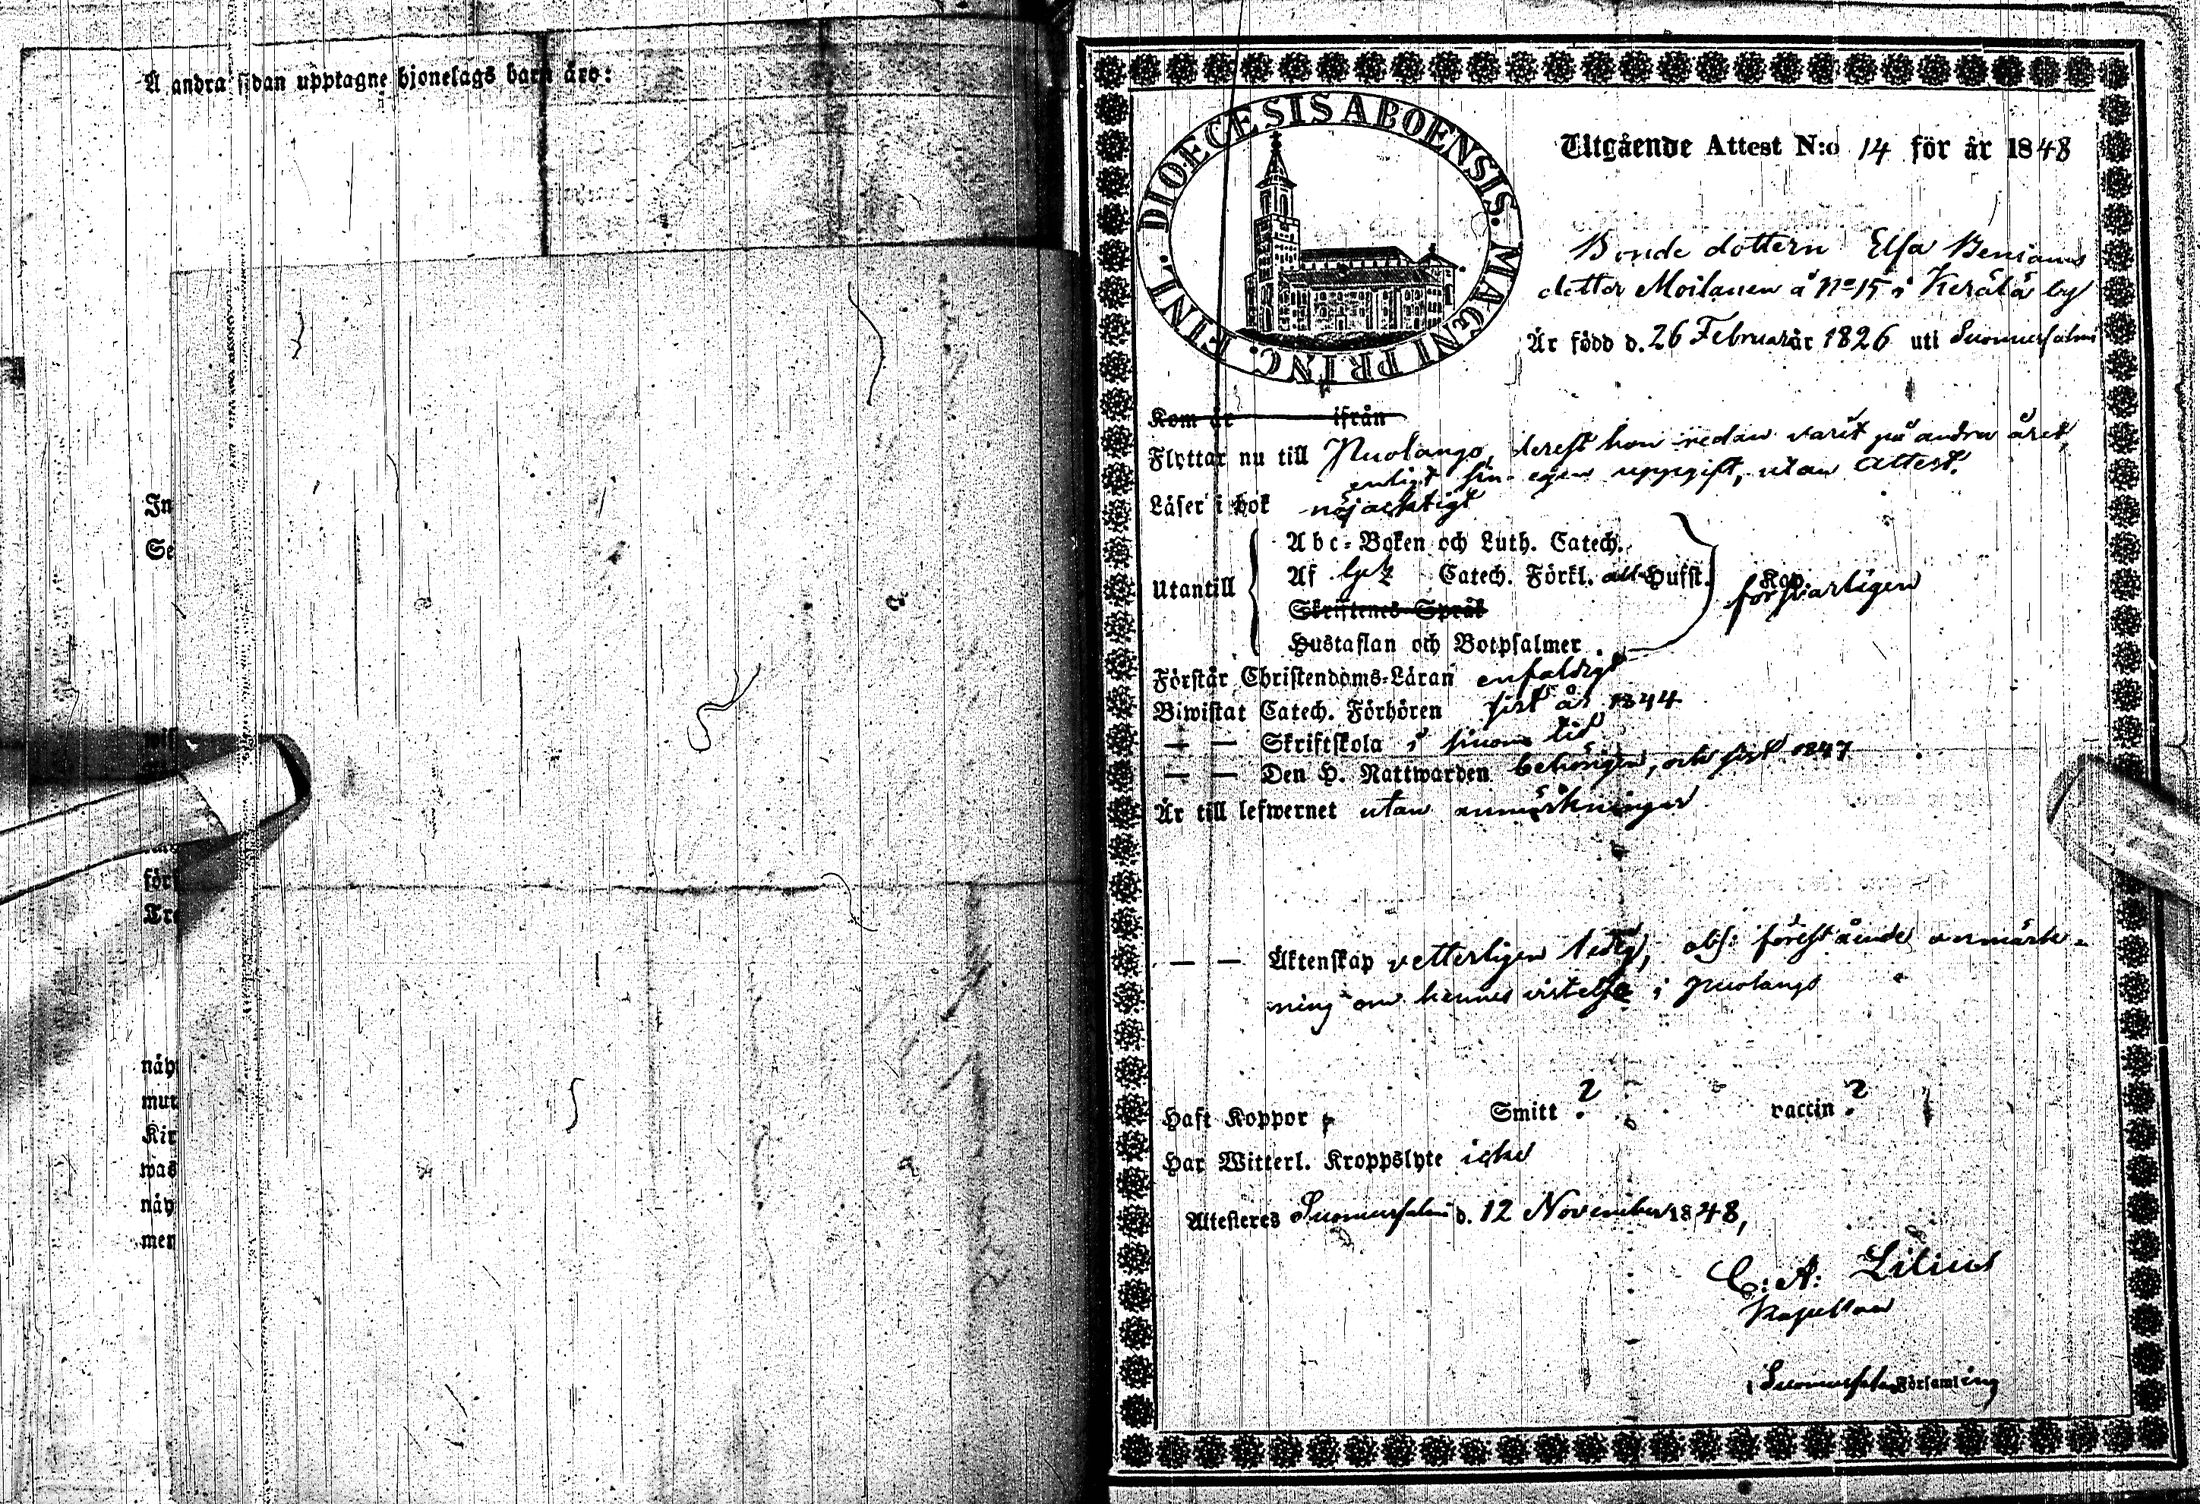 Å andra sidan upptagne hjonelags barn äro:
In
Se
förs
Tro
näp
mur
Kir
was
näp
mer
DIOECESIS ABOENSIS. MAGNI PRINC. FINL.
Utgående Attest N:o 14 för år 1848
Bonde dottern Elsa Beniams
dotter Moilanen å No 15 i Kerälä by
Är född d. 26 Februari år 1826 uti Suomussalmi
Kom år ifrån
Flyttar nu till Puolango, derest hon redan varit på andra året,
enligt sin egen uppgift, utan attest.
Läser i bok nöjacktigt
Abc-Boken och Luth. Catech.
Utantill Af Catech. Förkl. Hufst. Kap. försvarligen
Skriftenes Språk
Hustaflan och Botpsalmer
Förstår Christendoms-Läran enfaldigt
Biwistat Catech. Förhören sist år 1844
— — Skriftskola i sinom tid
— — Den H. Nattwarden behörigen, och sist 1847
Är till lefwernet utan anmärkningar
— — Äktenskap vetterligen ledig, obs: förestående anmärk-
ning om hennes vistelse i Puolango
Haft Koppor Smitt ? vaccin ?
Har Witterl. Kroppslyte icke
Attesteres Suomussalmi d. 12 November 1848,
C: A: Lilius
Kapellan
i Suomussalmi Församling